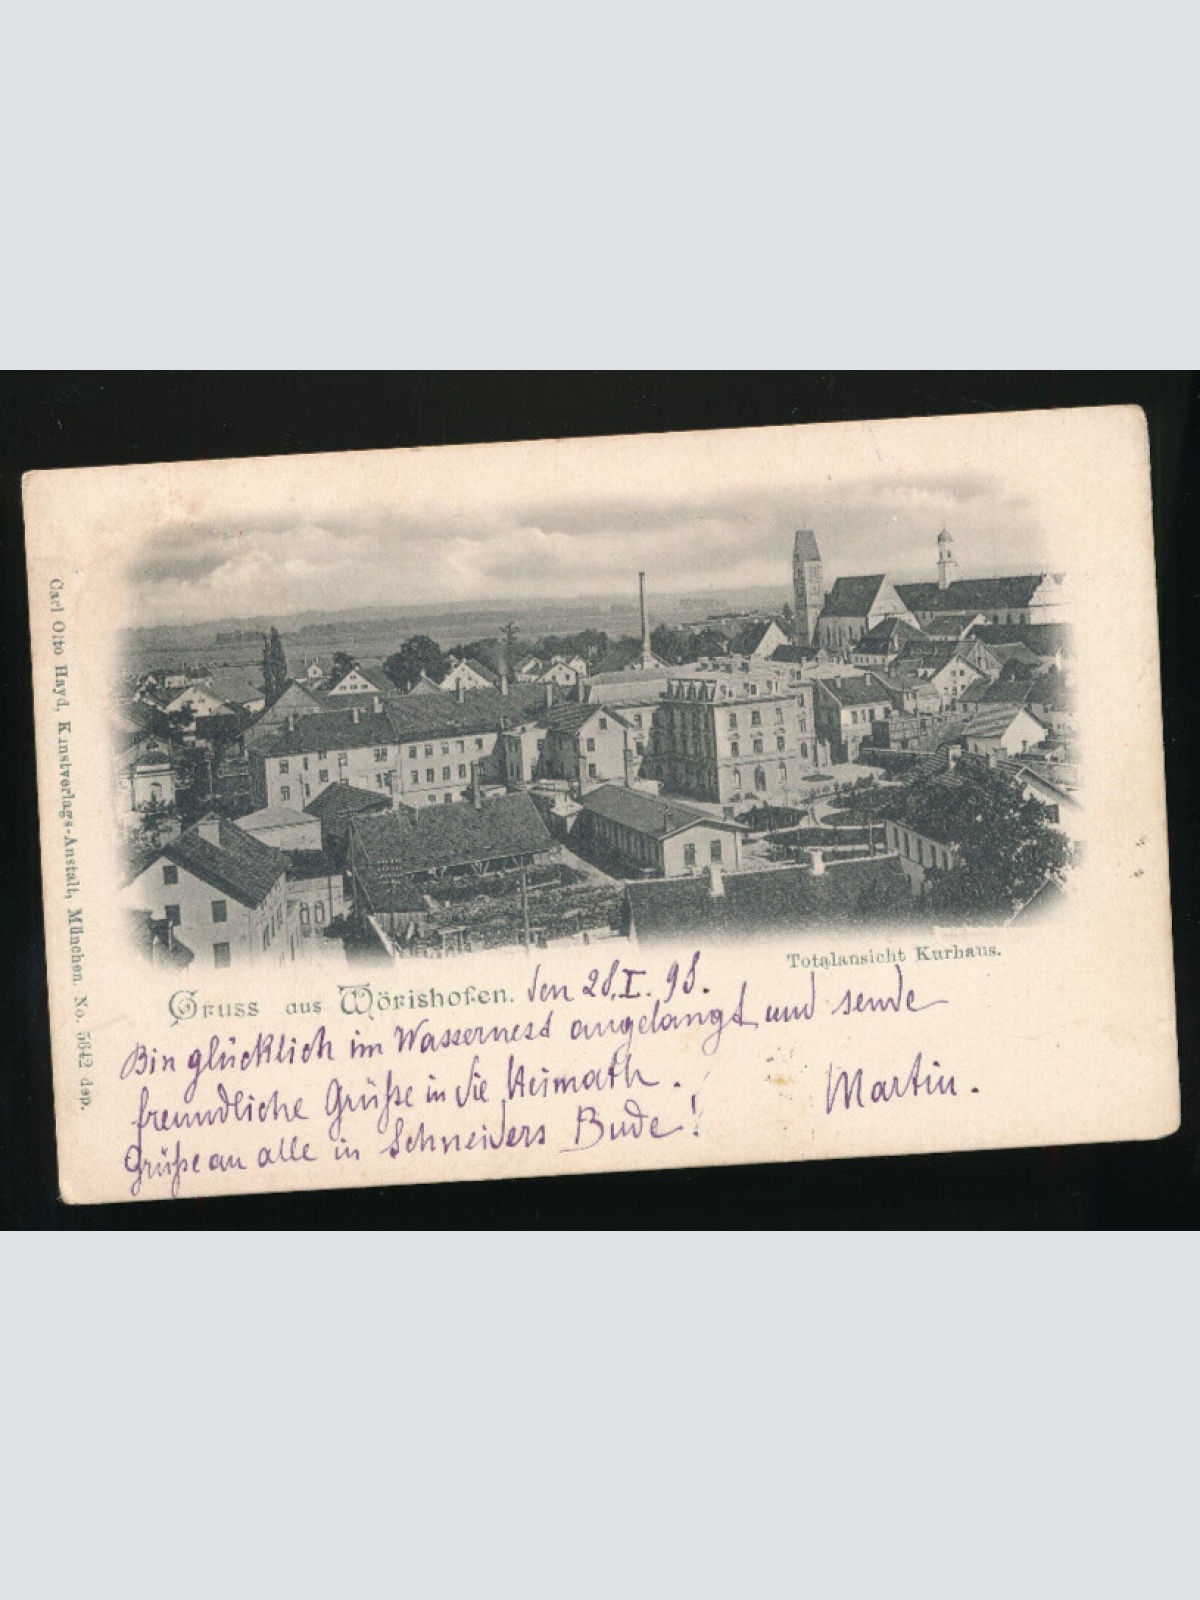 Totalansicht Kurhaus.
Gruss aus Wörishofen. den 28. I. 98.
Bin glücklich im Wassernest angelangt und sende
freundliche Grüße in die Heimath.
Martin.
Grüße an alle in Schneiders Bude!
Carl Otto Hayd, Kunstverlags-Anstalt, München. No. 5642 dep.